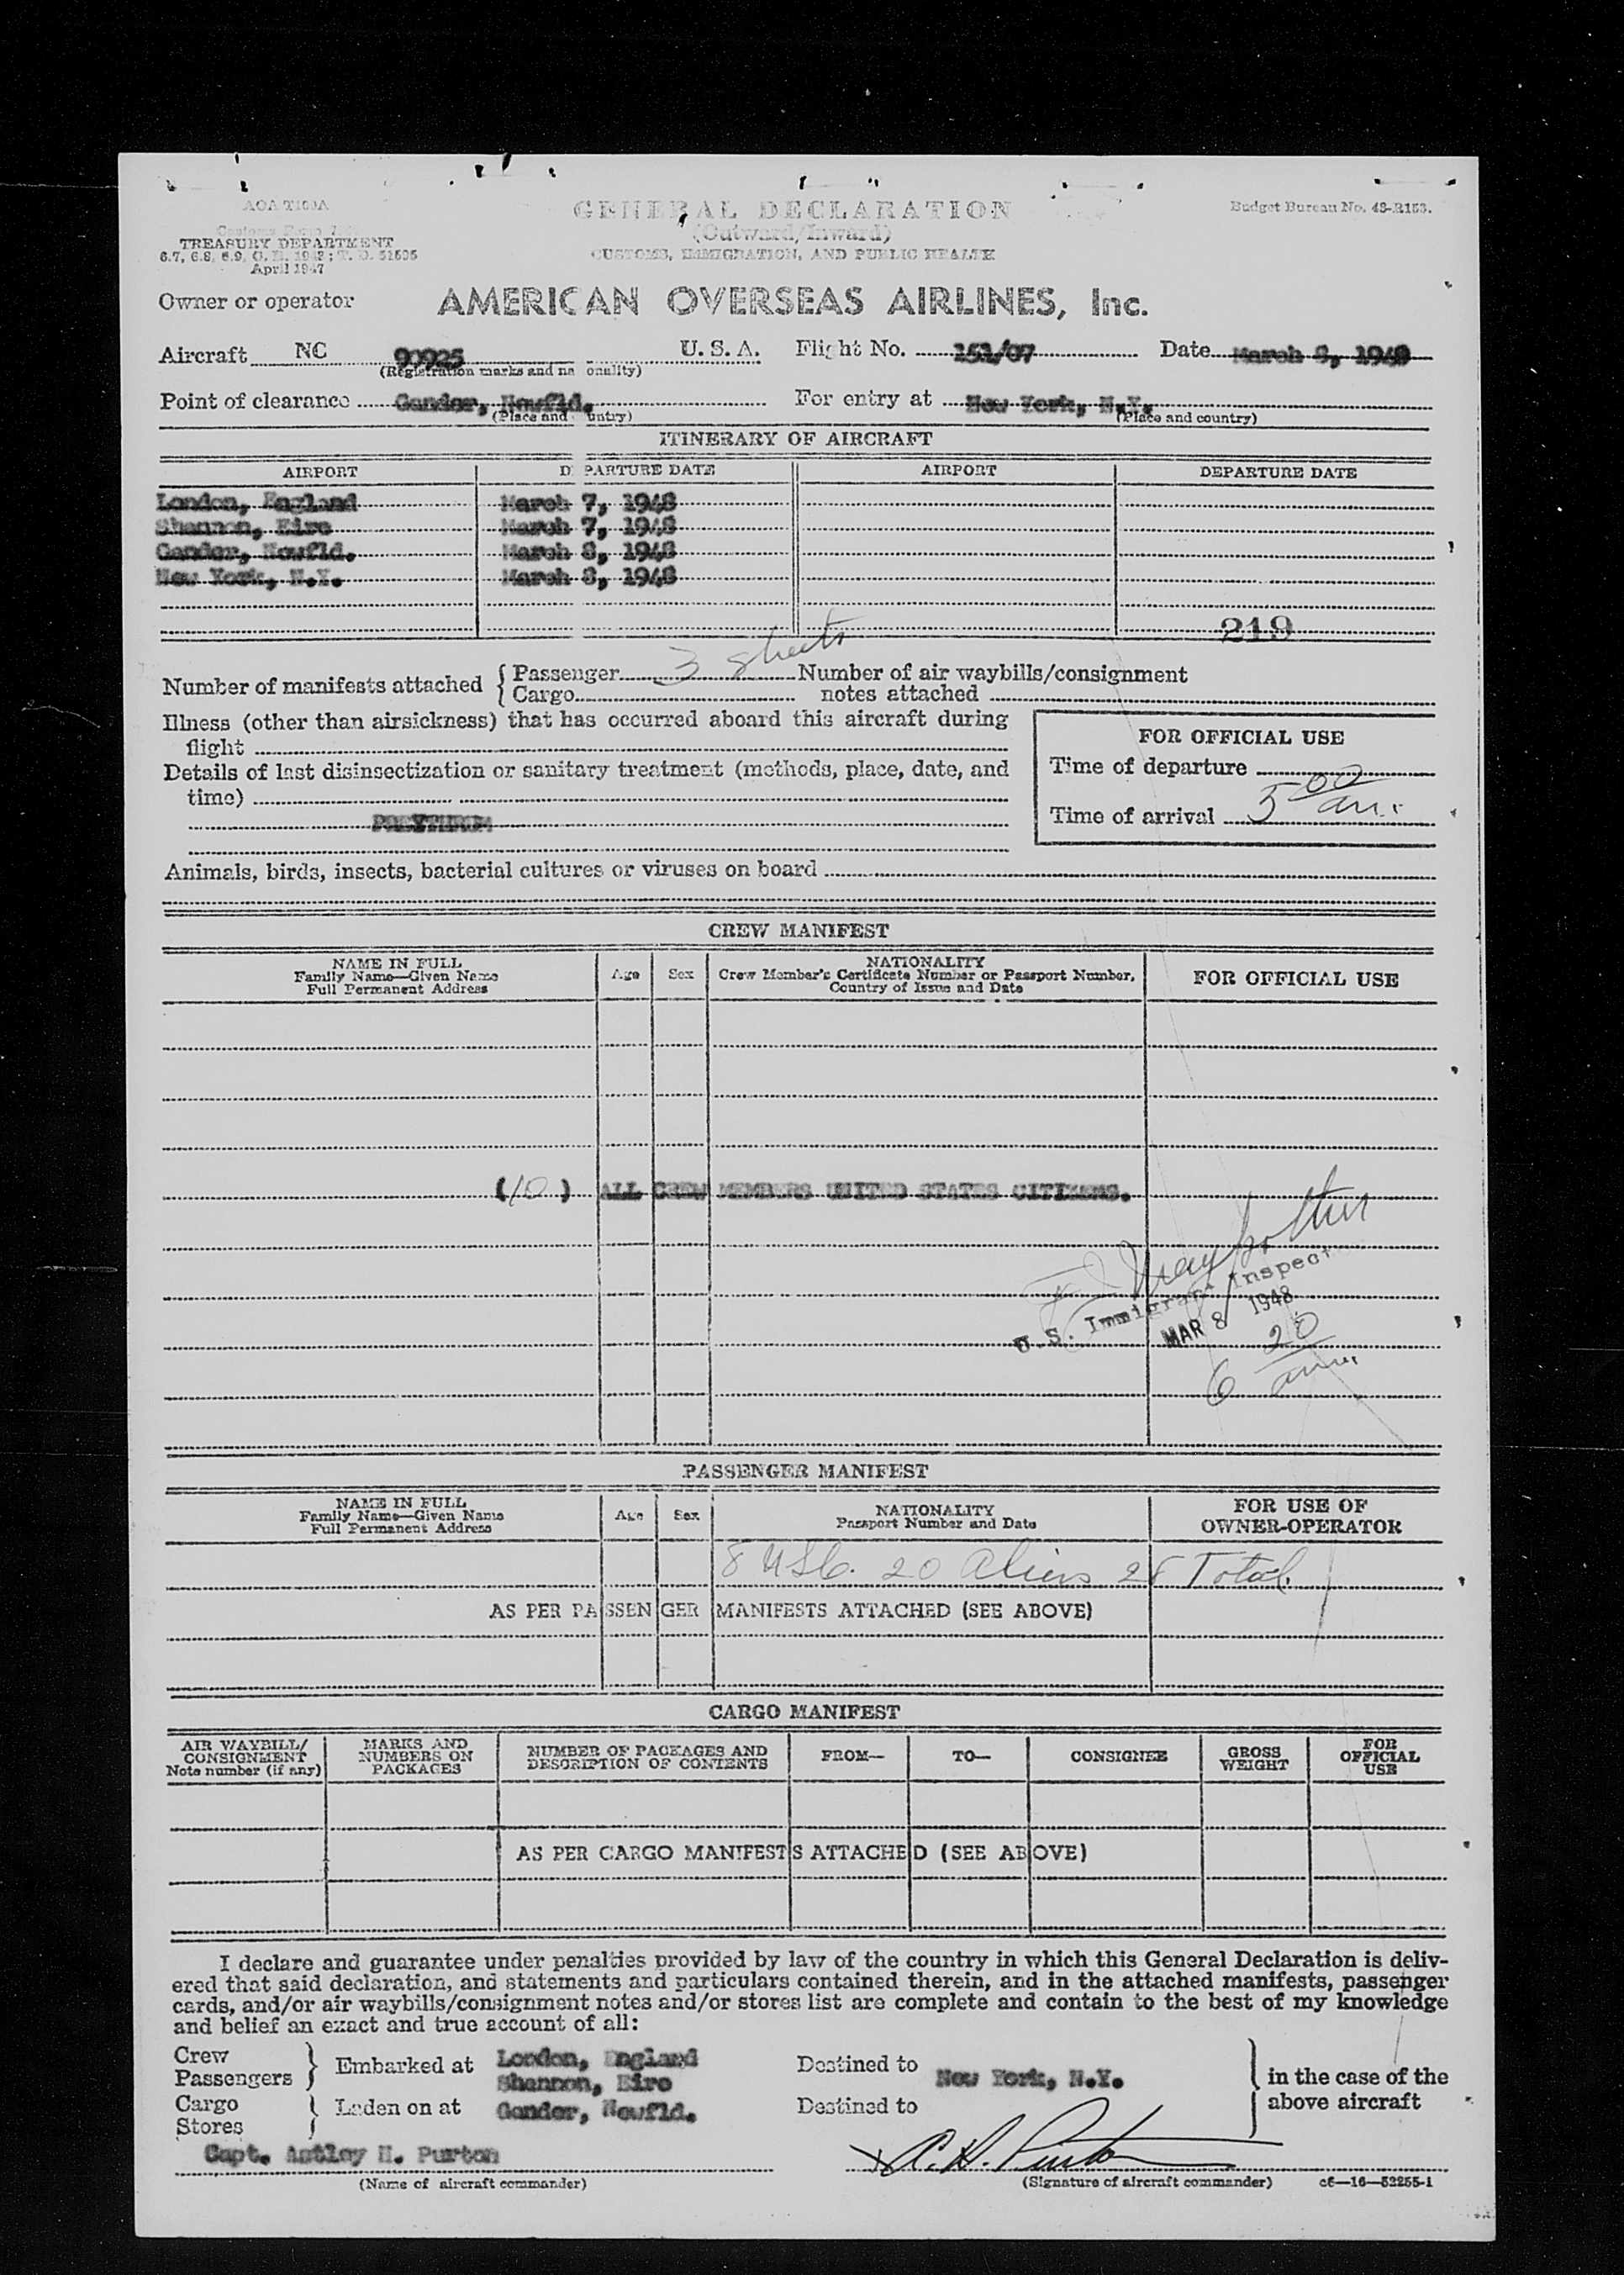 AOA T100A
GENERAL DECLARATION
Budget Bureau No. 48-R153.
(Outward/Inward)
Customs Form
TREASURY DEPARTMENT
CUSTOMS, IMMIGRATION, AND PUBLIC HEALTH
6.7, 6.8, 6.9, C. R. 1943; T. D. 51505
April 1947
Owner or operator AMERICAN OVERSEAS AIRLINES, Inc.
Aircraft NC 90925 U. S. A. Flight No. 151/07 Date March 8, 1948
(Registration marks and nationality)
Point of clearance Gander, Newfld. For entry at New York, N.Y.
(Place and country) (Place and country)
ITINERARY OF AIRCRAFT
AIRPORT DEPARTURE DATE AIRPORT DEPARTURE DATE
London, England March 7, 1948
Shannon, Eire March 7, 1948
Gander, Newfld. March 8, 1948
New York, N.Y. March 8, 1948
219
Number of manifests attached { Passenger 3 sheets Number of air waybills/consignment
Cargo notes attached
Illness (other than airsickness) that has occurred aboard this aircraft during
flight
FOR OFFICIAL USE
Details of last disinsectization or sanitary treatment (methods, place, date, and
time)
Time of departure
Time of arrival 5 00 am.
Animals, birds, insects, bacterial cultures or viruses on board
CREW MANIFEST
NAME IN FULL
Family Name—Given Name
Full Permanent Address
Age Sex
NATIONALITY
Crew Member's Certificate Number or Passport Number,
Country of Issue and Date
FOR OFFICIAL USE
(10) ALL CREW MEMBERS UNITED STATES CITIZENS.
U. S. Immigrant Inspect
MAR 8 1948
6 20 am.
PASSENGER MANIFEST
NAME IN FULL
Family Name—Given Name
Full Permanent Address
Age Sex
NATIONALITY
Passport Number and Date
FOR USE OF
OWNER-OPERATOR
8 USC. 20 Aliens 28 Total.
AS PER PASSENGER MANIFESTS ATTACHED (SEE ABOVE)
CARGO MANIFEST
AIR WAYBILL/
CONSIGNMENT
Note number (if any)
MARKS AND
NUMBERS ON
PACKAGES
NUMBER OF PACKAGES AND
DESCRIPTION OF CONTENTS
FROM— TO— CONSIGNEE
GROSS
WEIGHT
FOR
OFFICIAL
USE
AS PER CARGO MANIFESTS ATTACHED (SEE ABOVE)
I declare and guarantee under penalties provided by law of the country in which this General Declaration is deliv-
ered that said declaration, and statements and particulars contained therein, and in the attached manifests, passenger
cards, and/or air waybills/consignment notes and/or stores list are complete and contain to the best of my knowledge
and belief an exact and true account of all:
Crew
Passengers } Embarked at London, England Destined to New York, N.Y. } in the case of the
Shannon, Eire
Cargo
Stores } Laden on at Gander, Newfld. Destined to above aircraft
Capt. Astley H. Purton A. H. Purton
(Name of aircraft commander) (Signature of aircraft commander) c6—16—52255-1